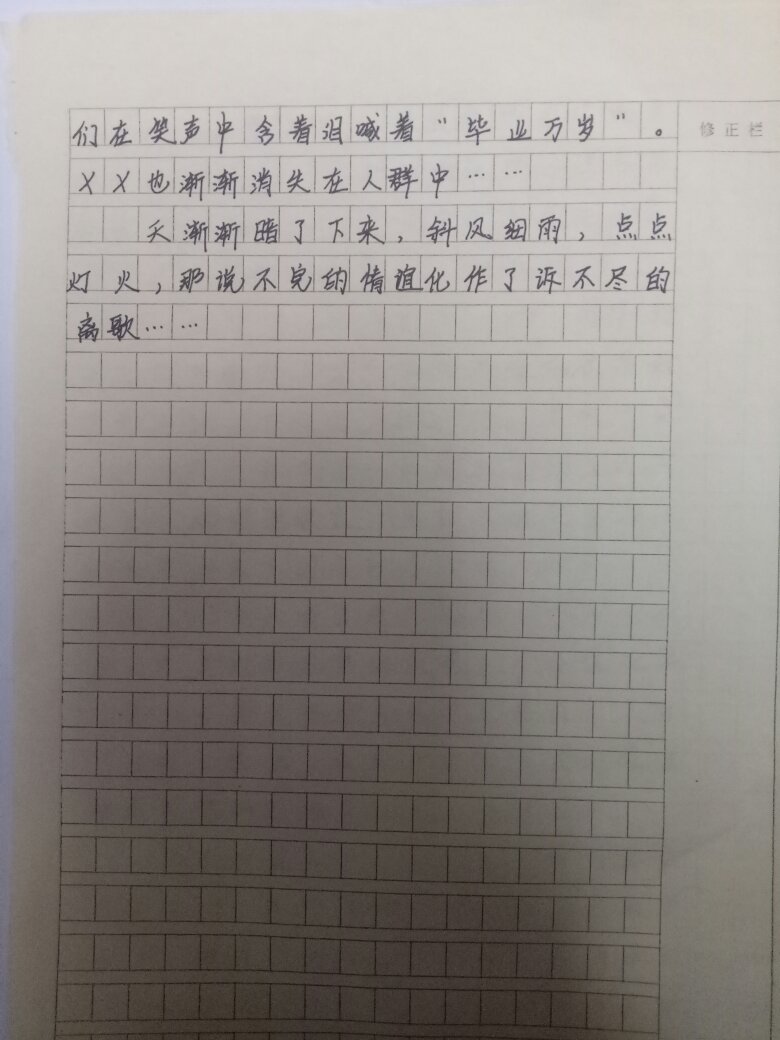 们在笑声中含着泪喊着“毕业万岁”。
修正栏
XX也渐渐消失在人群中……
天渐渐暗了下来，斜风细雨，点点
灯火，那说不完的情谊化作了诉不尽的
离歌……